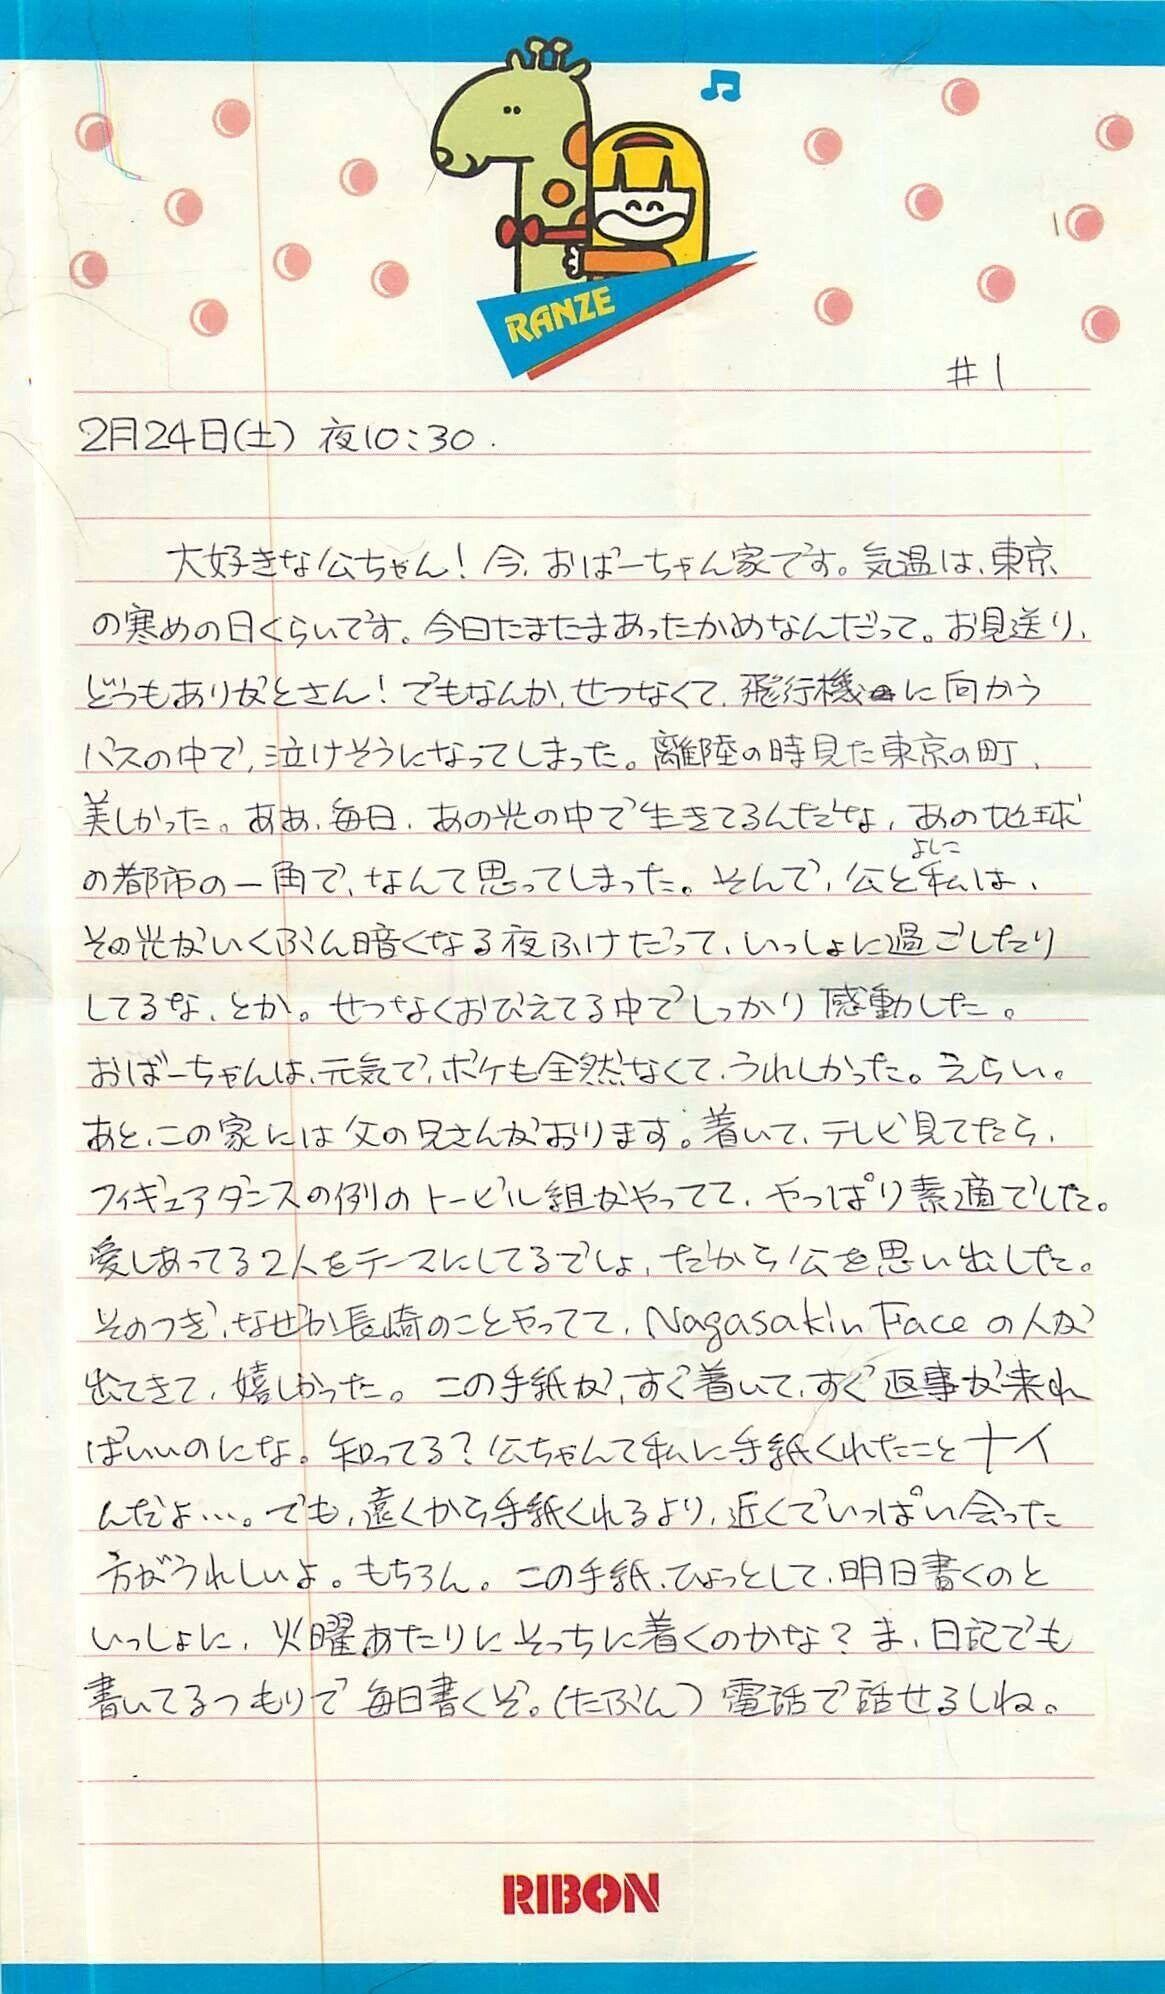 RANZE
#1
2月24日(土) 夜10:30.
大好きな公ちゃん!今、おばーちゃん家です。気温は、東京
の寒めの日くらいです。今日たまたまあったかめなんだって。お見送り、
どうもありがとさん!でもなんか、せつなくて、飛行機に向かう
バスの中で、泣けそうになってしまった。離陸の時見た東京の町、
美しかった。ああ、毎日、あの光の中で生きてるんだな、あの地球
の都市の一角で、なんて思ってしまった。そんで、公と私は、
よしこ
その光がいくぶん暗くなる夜ふけだって、いっしょに過ごしたり
してるな、とか。せつなくおびえてる中でしっかり感動した。
おばーちゃんは、元気で、ボケも全然なくて、うれしかった。えらい。
あと、この家には父の兄さんがおります。着いて、テレビ見てたら、
フィギュアダンスの例のトービル組がやってて、やっぱり素適でした。
愛しあってる2人をテースにしてるでしょ、だから公を思い出した。
そのつぎ、なぜか長崎のことやってて、Nagasakin Faceの人が
出てきて、嬉しかった。この手紙が、すぐ着いて、すぐ返事が来れ
ばいいのにな。知ってる?公ちゃんて私に手紙くれたことナイ
んだよ…。でも、遠くから手紙くれるより、近くでいっぱい会った
方がうれしいよ。もちろん。この手紙、ひょっとして、明日書くのと
いっしょに、火曜あたりにそっちに着くのかな?ま、日記でも
書いてるつもりで毎日書くぞ。(たぶん)電話で話せるしね。
RIBON